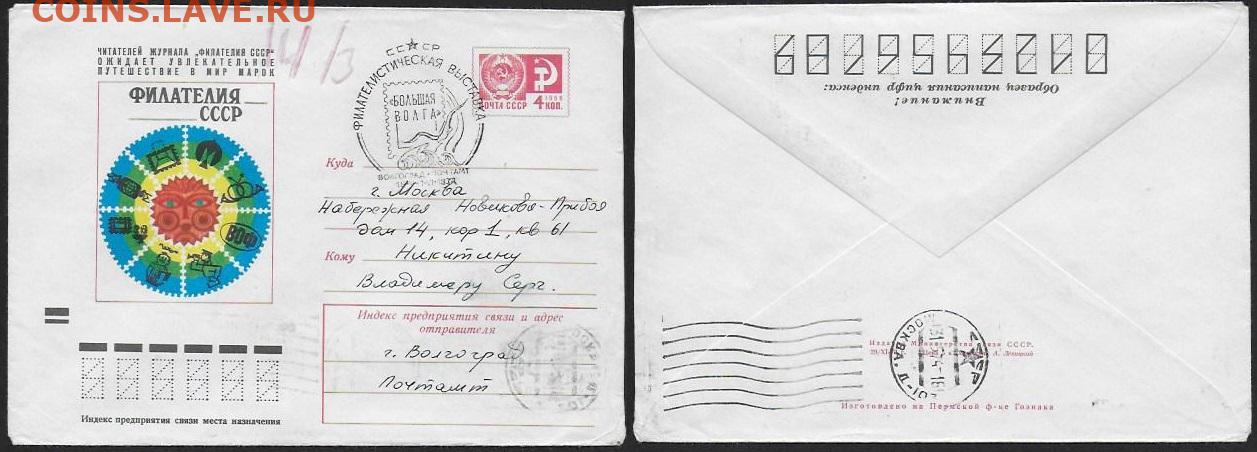 COINS.LAVE.RU
ЧИТАТЕЛЕЙ ЖУРНАЛА „ФИЛАТЕЛИЯ СССР“
ОЖИДАЕТ УВЛЕКАТЕЛЬНОЕ
ПУТЕШЕСТВИЕ В МИР МАРОК
ФИЛАТЕЛИЯ
СССР
ВОФ
СССР
ФИЛАТЕЛИСТИЧЕСКАЯ ВЫСТАВКА
«БОЛЬШАЯ
ВОЛГА»
ВОЛГОГРАД • ПОЧТАМТ
1966
ПОЧТА СССР 4 КОП.
Куда
г. Москва
Набережная Новикова-Прибоя
дом 14, кор 1, кв 61
Кому Никитину
Владимеру Серг.
Индекс предприятия связи и адрес
отправителя
г. Волгоград
Почтамт
Индекс предприятия связи места назначения
Внимание!
Образец написания цифр индекса:
МОСКВА
Министерство связи СССР.
Изготовлено на Пермской ф-ке Гознака